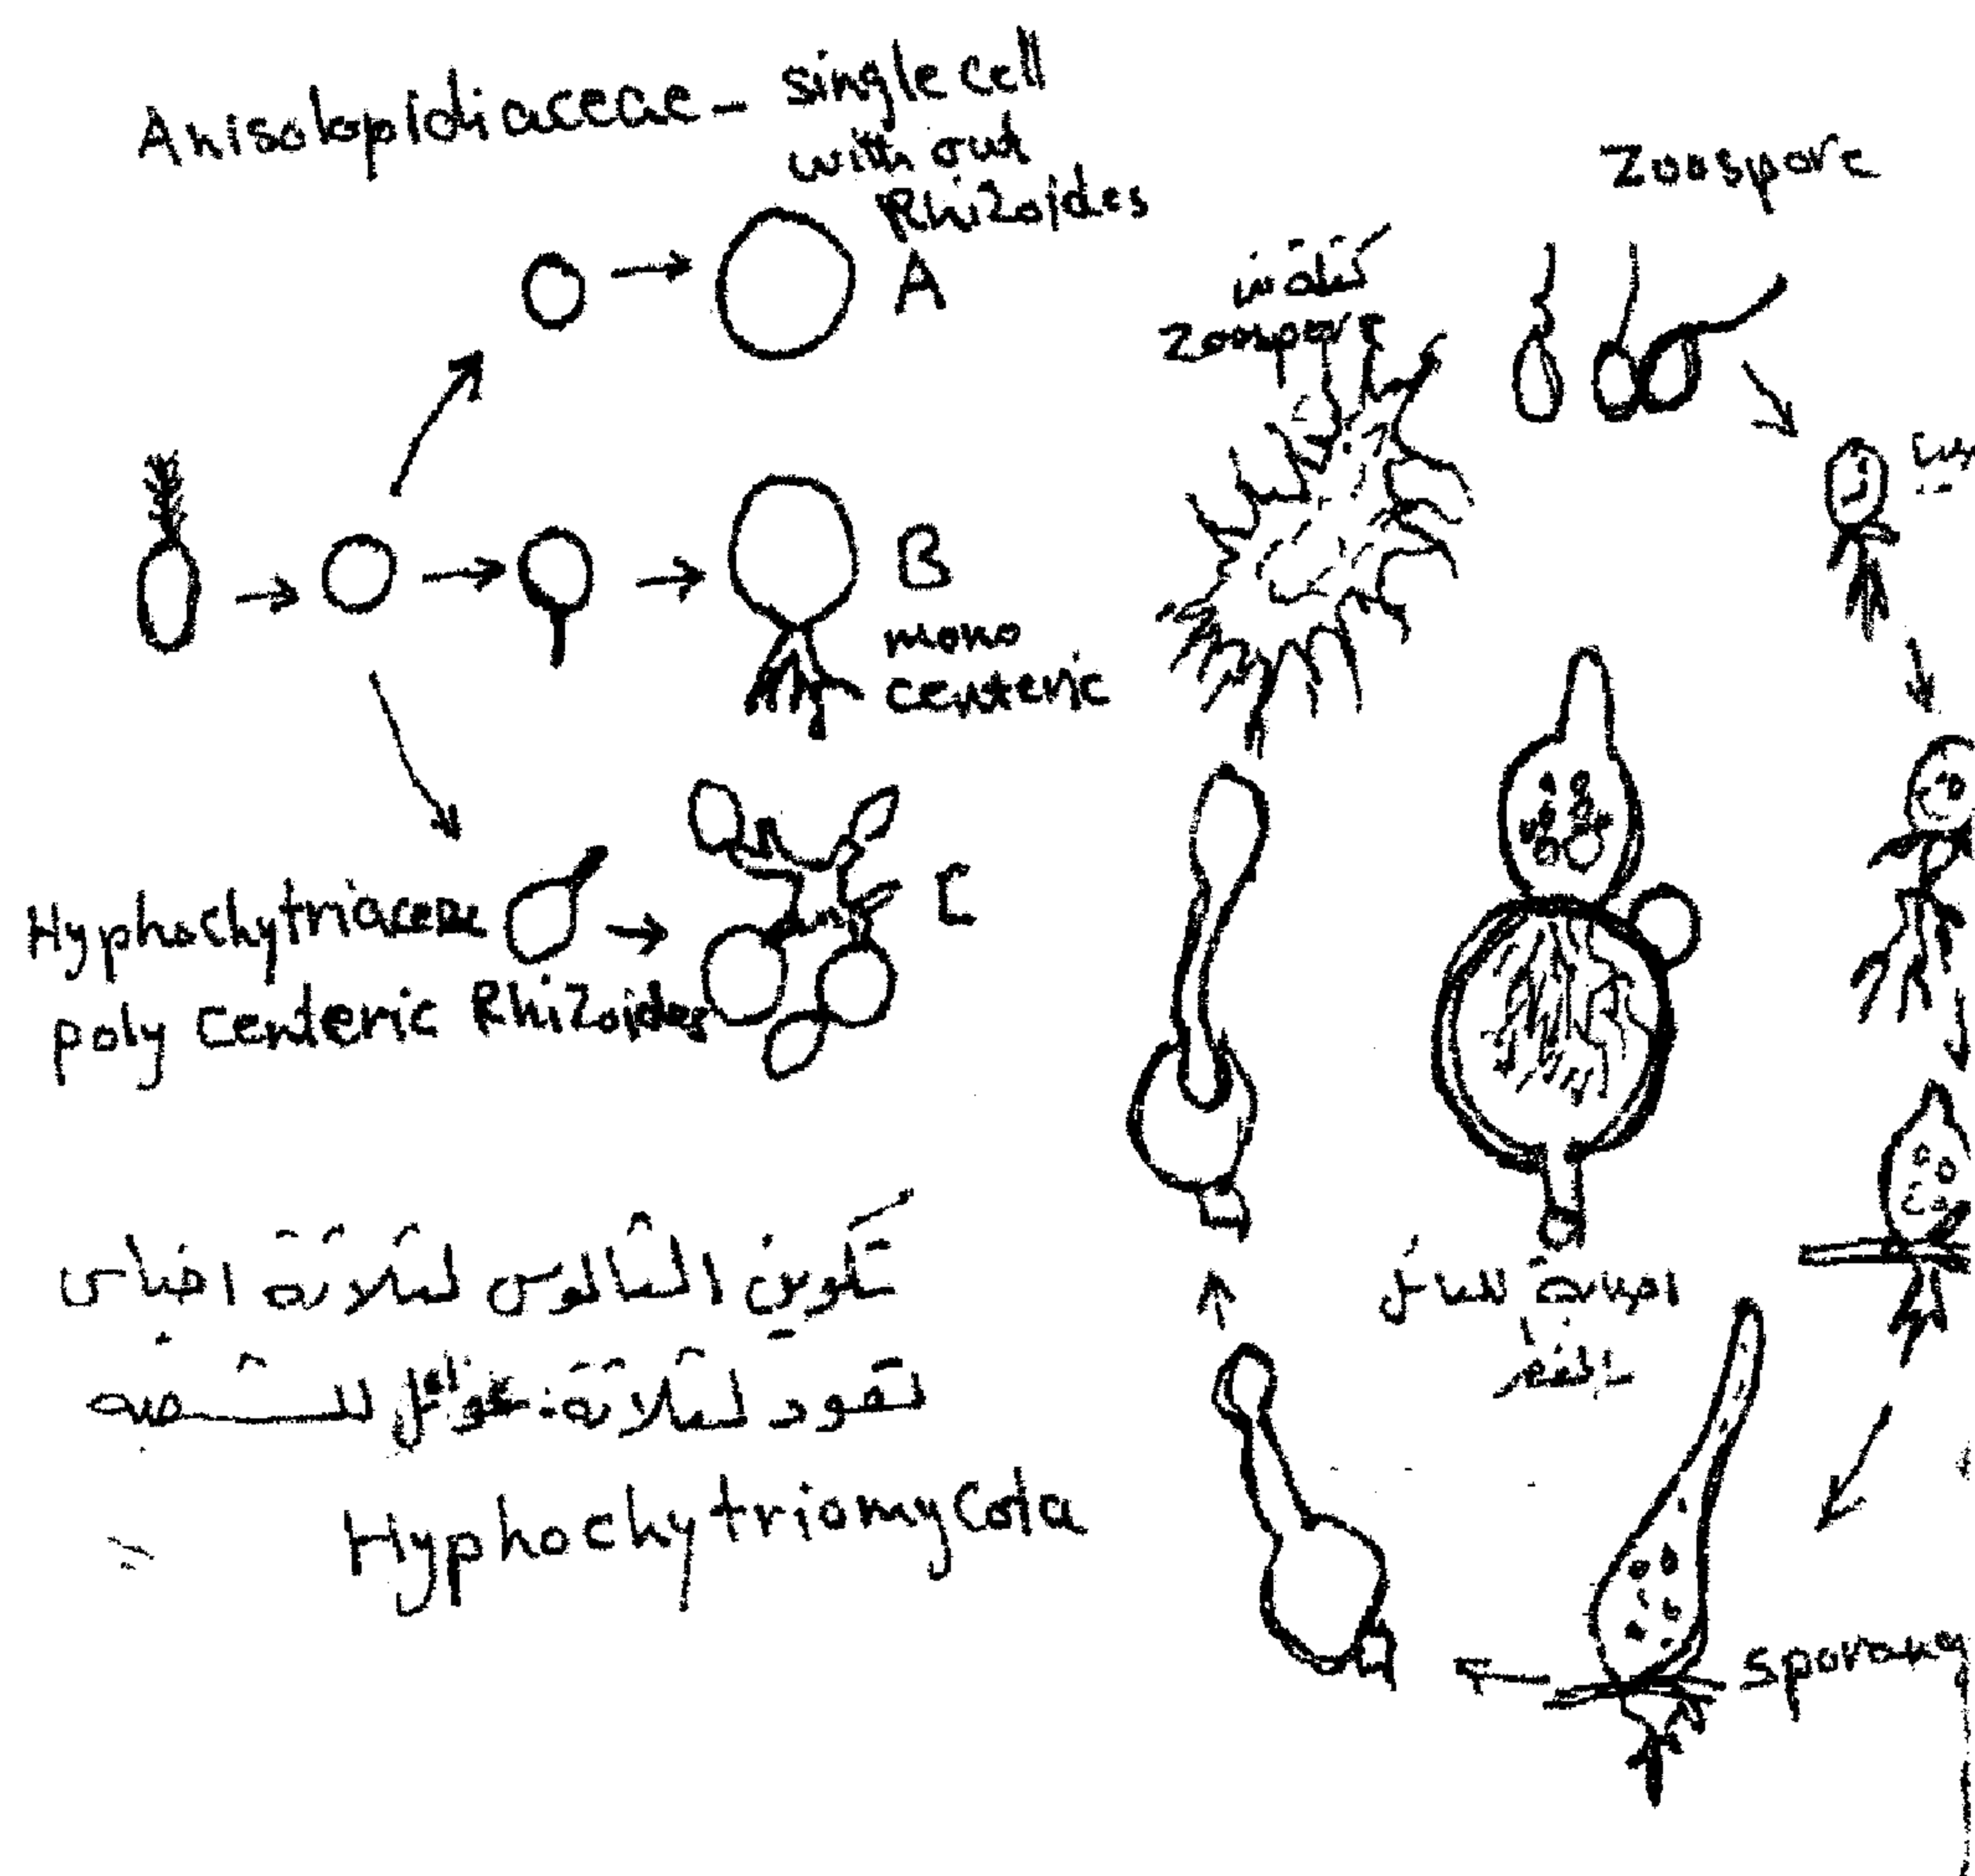 Anisolopidiaceae - single cell
with out
Rhizoides
A
B
mono
centeric
Hyphochytriaceae
poly centeric Rhizoides
C
تكوين الثالوس لثلاثة اجناس
تعود لثلاثة عوائل للشعبه
Hyphochytriomycota
Zoospore
كتلة من
Zoospore
اصابة للبائغ
بالفطر
sporang